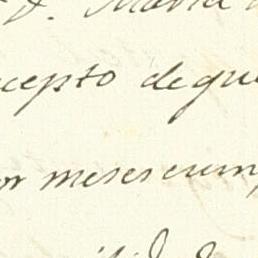 D. Maria
cepto de que
or meses cum